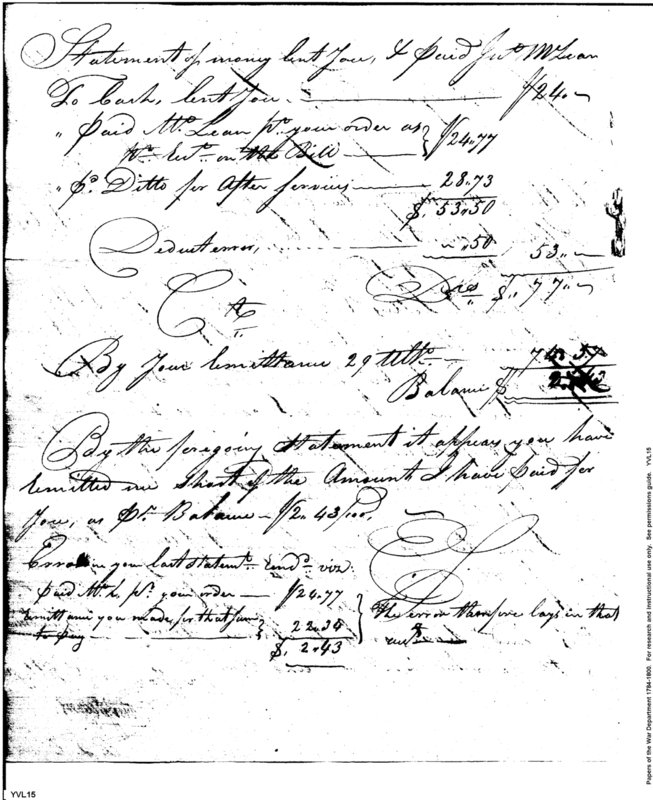 Statement of money lent You, & paid Jno McLean
To Cash, lent You. $24."~
" Paid Mc.Lean pr. your order as } $24.77
pr. Rect. on the Bill
" pd. Ditto for After Services 28.73
$. 53.50
Deduct error, " .50 53."~
Drs $. 77."~
Cr
By Your Remittance 29 Ulto. 74.57
Balance $ 2.43
By the foregoing Statement it appears you have
remitted me Short of the Amount I have paid for
You, as pr. Balance - $2. 43/100.
Error in your last statemt. Rend. viz.
paid Mc.L. pr. your order — $24.77
Remittance you made, for that Sum } 22.34
to pay
$. 2.43
The error therefore lays in that
E S
Papers of the War Department 1784-1800. For research and instructional use only. See permissions guide. YVL15
YVL15